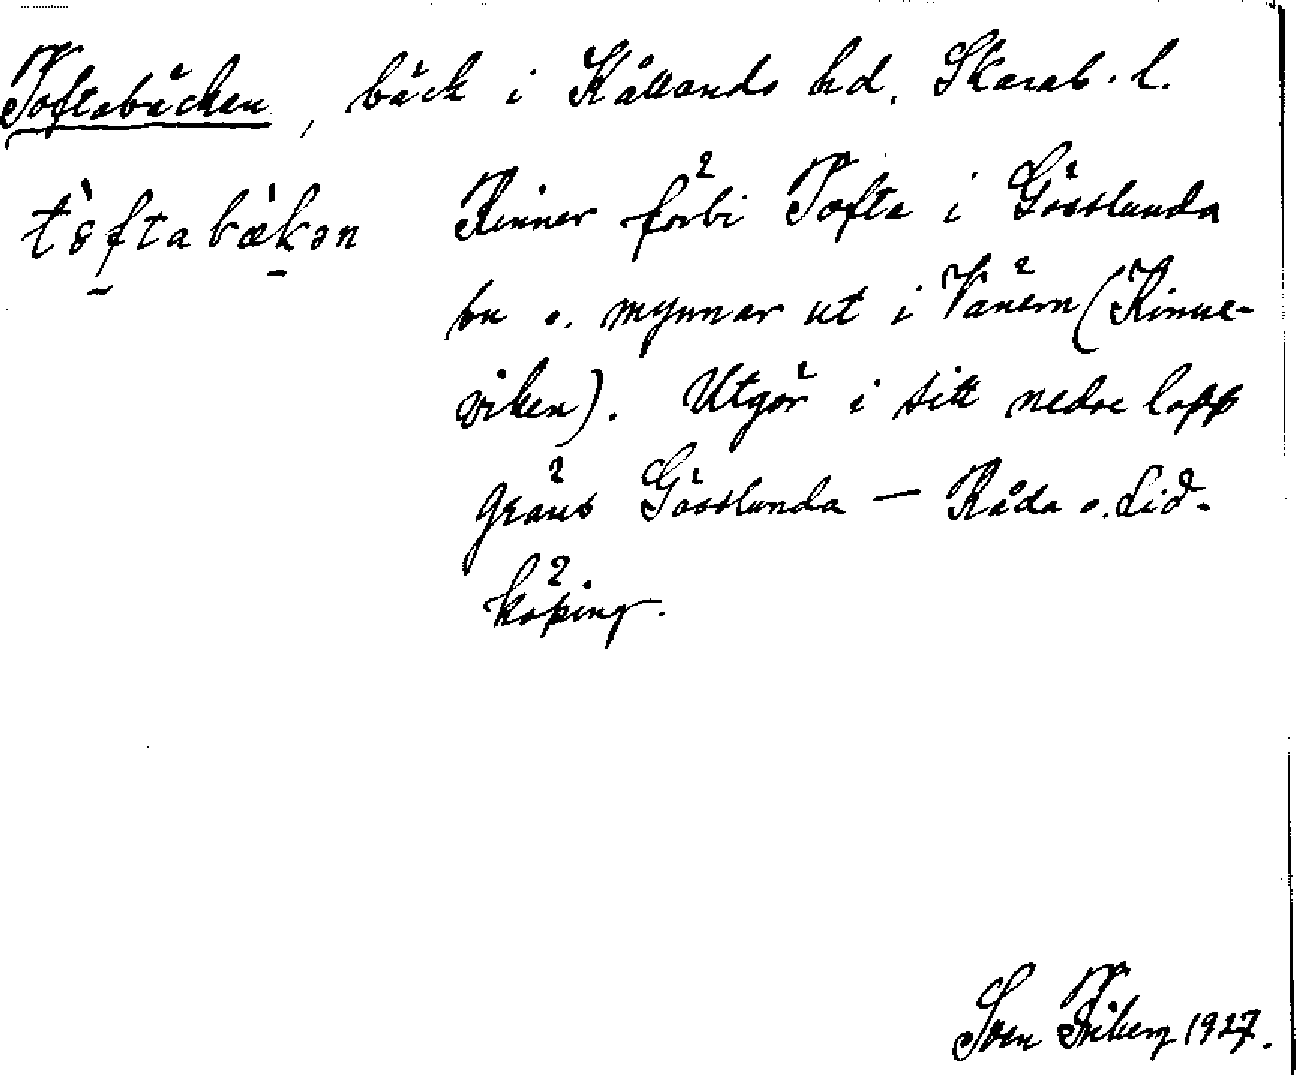 Toftabäcken, bäck i Kållands hd. Skarab. l.
Rinner förbi Tofta i Gösslunda
sn o. mynnar ut i Vänern (Kinne-
viken). Utgör i sitt nedre lopp
gräns Gösslunda — Råda o. Lid-
köping.
Sven Friberg 1927.